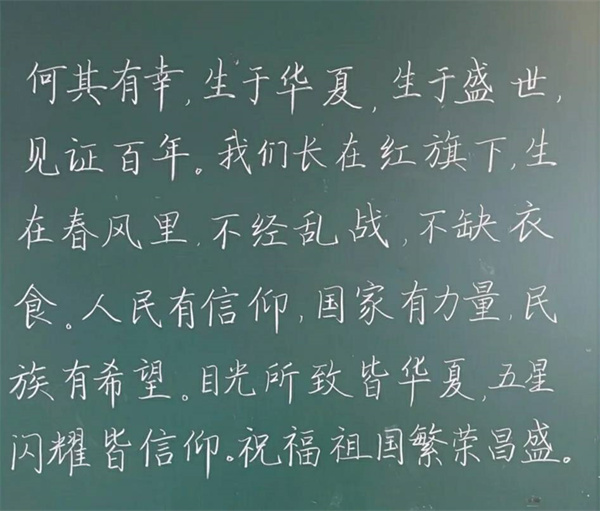 何其有幸,生于华夏,生于盛世,
见证百年。我们长在红旗下,生
在春风里,不经乱战,不缺衣
食。人民有信仰,国家有力量,民
族有希望。目光所致皆华夏,五星
闪耀皆信仰。祝福祖国繁荣昌盛。